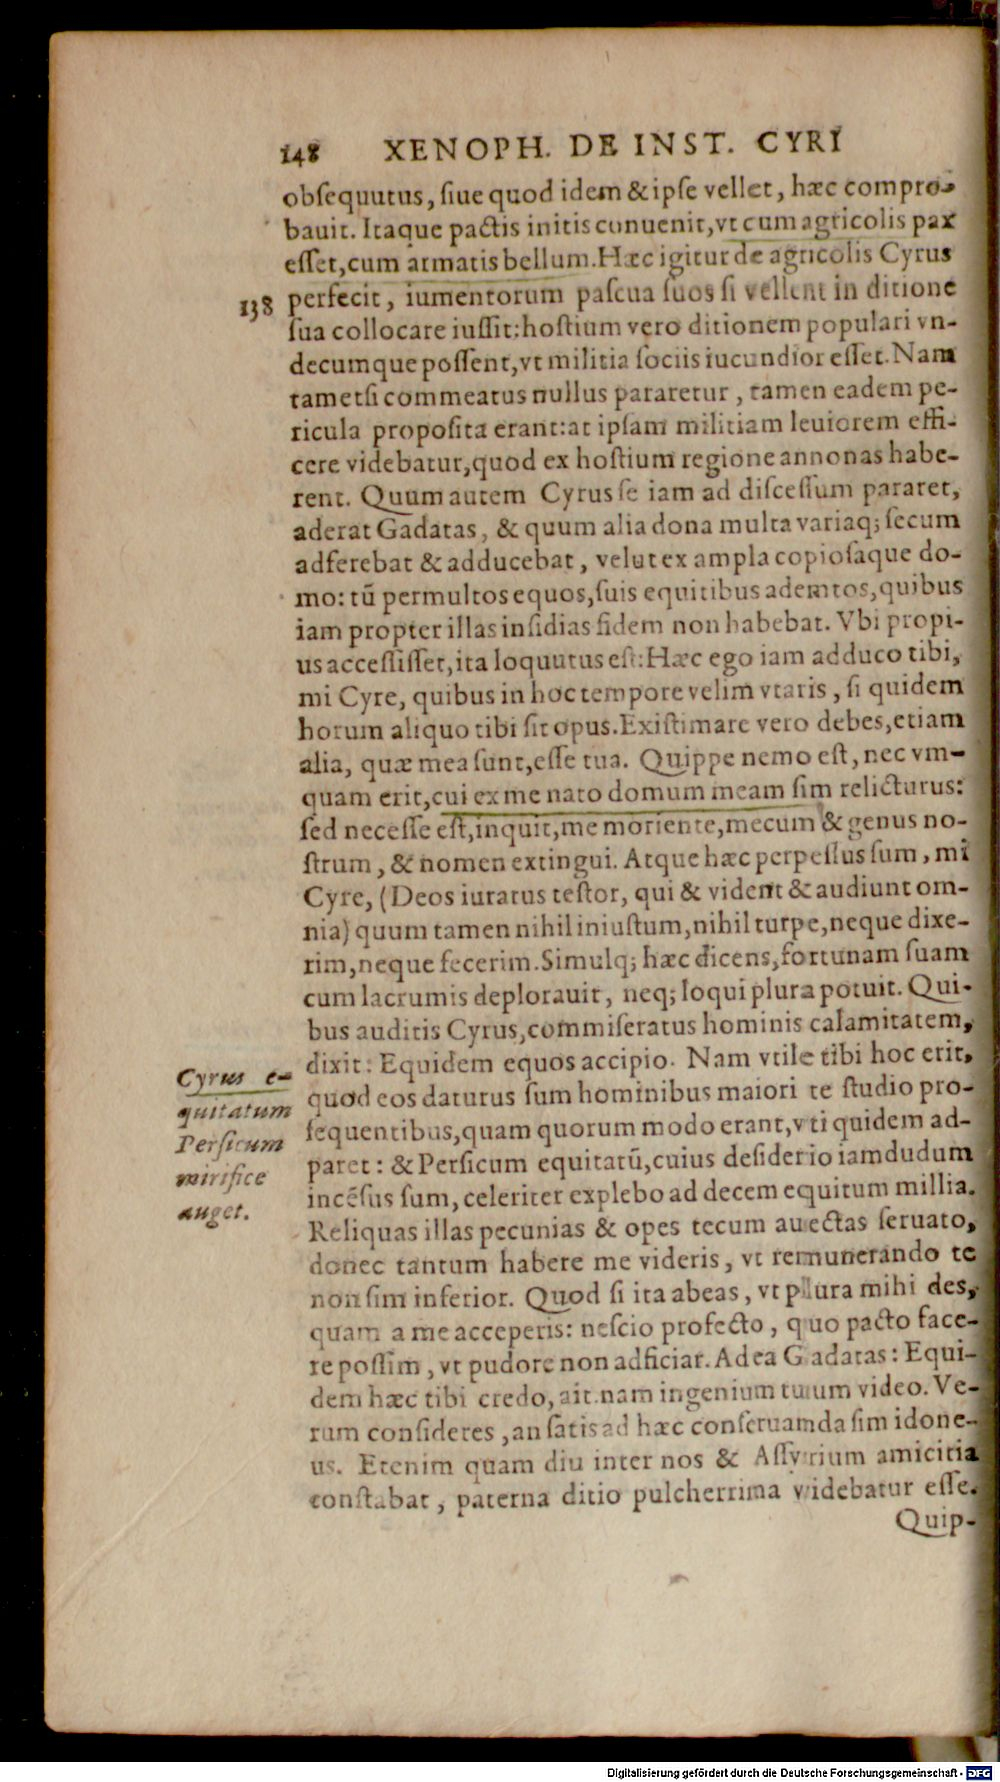 148 XENOPH. DE INST. CYRI
obſequutus, ſiue quod idem & ipſe vellet, hæc compro-
bauit. Itaque pactis initis conuenit, vt cum agricolis pax
eſſet, cum armatis bellum. Hæc igitur de agricolis Cyrus
138 perfecit, iumentorum paſcua ſuos ſi vellent in ditione
ſua collocare iuſſit: hoſtium vero ditionem populari vn-
decumque poſſent, vt militia ſociis iucundior eſſet. Nam
tametſi commeatus nullus pararetur, tamen eadem pe-
ricula propoſita erant: at ipſam militiam leuiorem effi-
cere videbatur, quod ex hoſtium regione annonas habe-
rent. Quum autem Cyrus ſe iam ad diſceſſum pararet,
aderat Gadatas, & quum alia dona multa variaq; ſecum
adferebat & adducebat, velut ex ampla copioſaque do-
mo: tū permultos equos, ſuis equitibus ademtos, quibus
iam propter illas inſidias fidem non habebat. Vbi propi-
us acceſſiſſet, ita loquutus eſt: Hæc ego iam adduco tibi,
mi Cyre, quibus in hoc tempore velim vtaris, ſi quidem
horum aliquo tibi ſit opus. Exiſtimare vero debes, etiam
alia, quæ mea ſunt, eſſe tua. Quippe nemo eſt, nec vm-
quam erit, cui ex me nato domum meam ſim relicturus:
ſed neceſſe eſt, inquit, me moriente, mecum & genus no-
ſtrum, & nomen extingui. Atque hæc perpeſſus ſum, mi
Cyre, (Deos iuratus teſtor, qui & vident & audiunt om-
nia) quum tamen nihil iniuſtum, nihil turpe, neque dixe-
rim, neque fecerim. Simulq; hæc dicens, fortunam ſuam
cum lacrumis deplorauit, neq; loqui plura potuit. Qui-
bus auditis Cyrus, commiſeratus hominis calamitatem,
dixit: Equidem equos accipio. Nam vtile tibi hoc erit,
quod eos daturus ſum hominibus maiori te ſtudio pro-
ſequentibus, quam quorum modo erant, vti quidem ad-
paret: & Perſicum equitatū, cuius deſiderio iamdudum
incēſus ſum, celeriter explebo ad decem equitum millia.
Reliquas illas pecunias & opes tecum auectas ſeruato,
donec tantum habere me videris, vt remunerando te
non ſim inferior. Quod ſi ita abeas, vt plura mihi des,
quam a me acceperis: neſcio profecto, quo pacto face-
re poſſim, vt pudore non adficiar. Ad ea Gadatas: Equi-
dem hæc tibi credo, ait. nam ingenium tuum video. Ve-
rum conſideres, an ſatis ad hæc conſeruamda ſim idone-
us. Etenim quam diu inter nos & Aſſyrium amicitia
conſtabat, paterna ditio pulcherrima videbatur eſſe.
Quip-
Cyrus e-
quitatum
Perſicum
mirifice
auget.
Digitalisierung gefördert durch die Deutsche Forschungsgemeinschaft - DFG